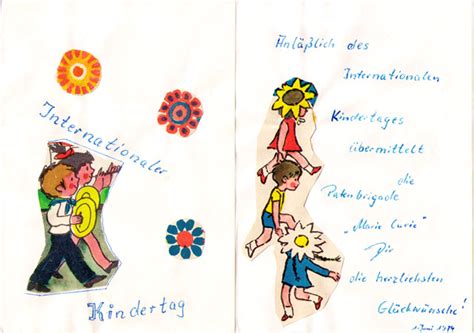 Internationaler
Kindertag
Anläßlich des
Internationalen
Kindertages
übermittelt
die
Patenbrigade
„Marie Curie"
Dir
die herzlichsten
Glückwünsche!
1. Juni 1974